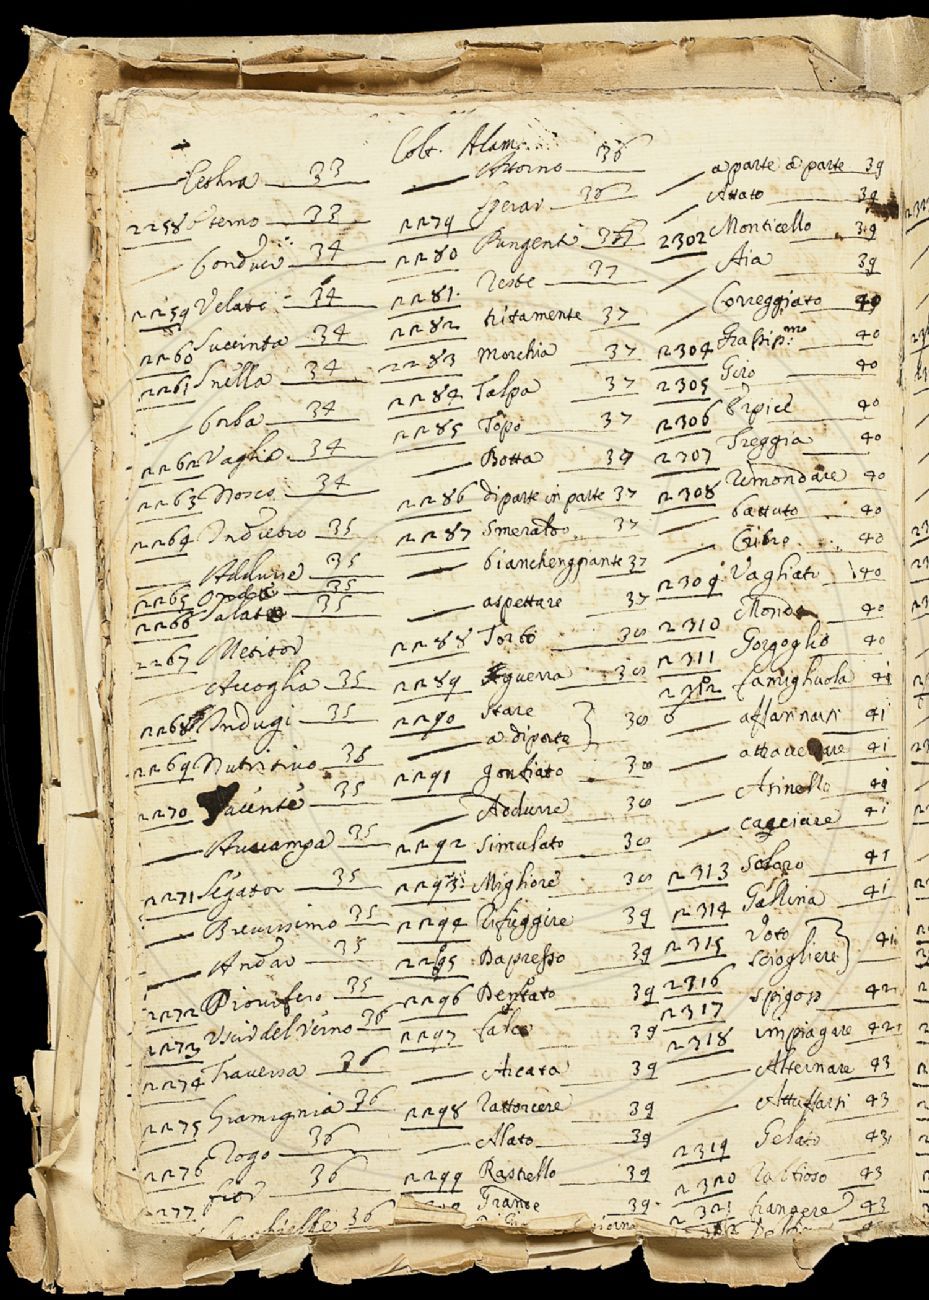 Colt. Alam.
— Cethra 33
2258 Eterno 33
— Conduci 34
2259 Velate 34
2260 Succinta 34
2261 Snella 34
— Orba 34
2262 Vaglia 34
2263 Nosco 34
2264 Indietro 35
— Addurre 35
2265 35
2266 Salata 35
2267 Mietitor
— Accoglia 35
2268 Indugi 35
2269 Nutritivo 36
2270 35
— Avvampa 35
2271 Segator 35
— Brevissimo 35
— Andar 35
2272 Piovifero 35
2273 Uscir del Verno 36
2274 Traversa 36
2275 Gramignia 36
2276 Rogo 36
2277 fior 36
36
— Attorno 36
2279 Sperar 36
2280 Pungenti 37
2281 Reste 37
2282 tritamente 37
2283 Morchia 37
2284 Talpa 37
2285 Topo 37
— Botta 37
2286 di parte in parte 37
2287 Smeraldo 37
— biancheggiante 37
— aspettare 37
2288 Torbo 38
2289 guerra 38
2290 Stare } 38
— a diporto
2291 gonfiato 38
— Addurre 38
2292 Simulato 38
2293 Migliore 38
2294 Rifuggire 39
2295 Dapresso 39
2296 Dentato 39
2297 falce 39
— Aicata 39
2298 Rattorcere 39
— Alato 39
2299 Rastello 39
Frange 39
— a parte a parte 39
— Attato 39
2302 Monticello 39
— Aia 39
— Correggiato 40
2304 40
2305 Giro 40
2306 Erpice 40
2307 Treggia 40
2308 Rimondare 40
— battuto 40
— Cribro 40
2309 Vagliati 40
2310 Monda 40
2311 Gorgoglio 40
2312 famigliuola 41
— affannarsi 41
— attraversare 41
— Asinello 41
— cacciare 41
2313 Solaro 41
2314 Gallina 41
2315 Voto } 41
2316 Sciogliere
2317 Spigop 42
2318 impiagare 42
— Alternare 43
— Attuffarsi 43
2319 Gelato 43
2320 43
2321 frangere 43